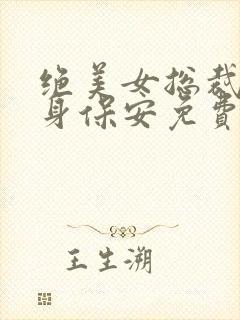 绝美女总裁
身保安免費
王生溯